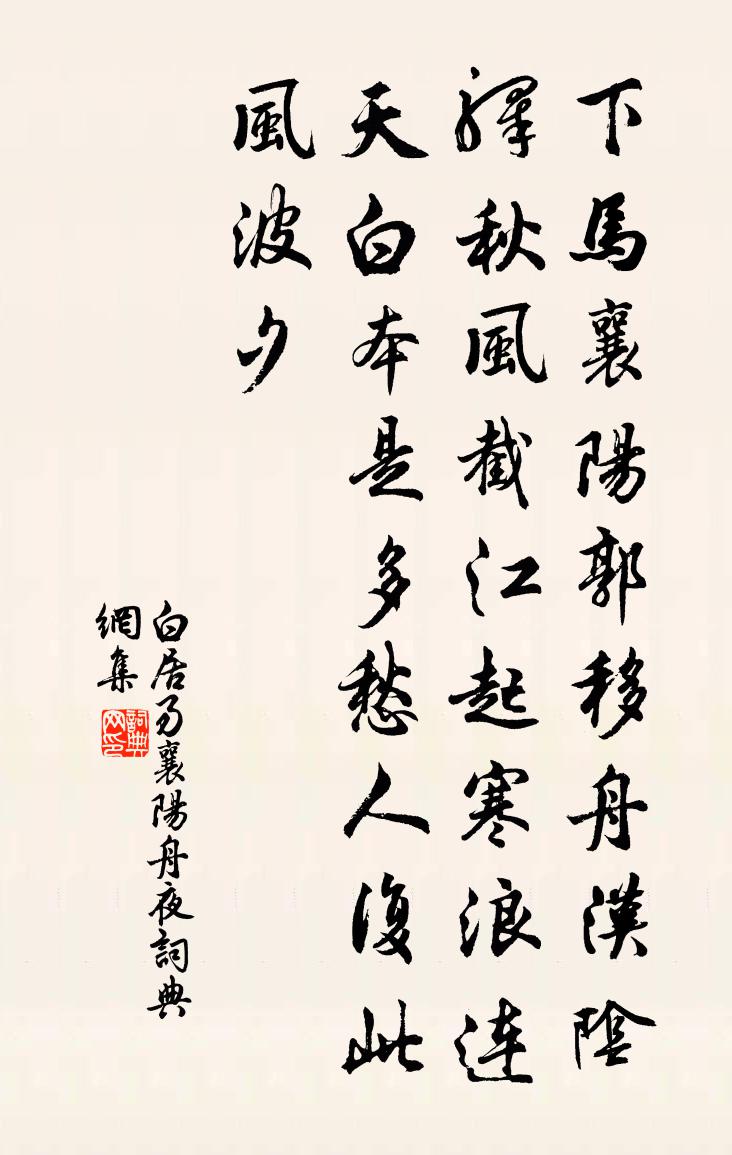 下馬襄陽郭移舟漢陰
驛秋風截江起寒浪連
天白本是多愁人復此
風波夕
白居易襄陽舟夜詞典
網集
詞典网印